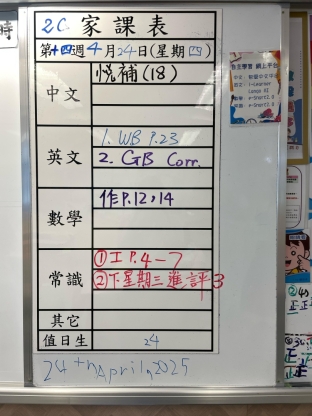 2C 家課表
第十四週4月24日(星期四)
中文 悅補(18)
英文 1. WB P.23
2. GB Corr.
數學 作P.12,14
常識 ①工P.4-7
②下星期三進評3
其它
值日生 24
24th April, 2025
時
自主學習 網上平台